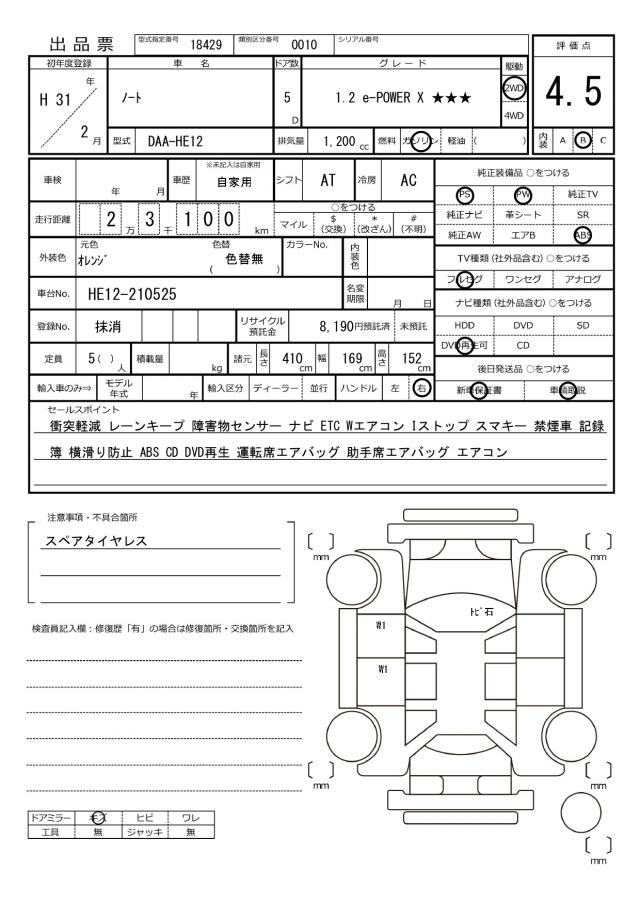 出品票 型式指定番号 18429 類別区分番号 0010 シリアル番号
評価点
4.5
内装 A B C
初年度登録 車名 ドア数 グレード 駆動
H 31 年 2 月 ノート 5 D 1.2 e-POWER X ★★★ 2WD 4WD
型式 DAA-HE12 排気量 1,200 cc 燃料 ガソリン 軽油 ( )
車検 年 月 車歴 ※未記入は自家用 自家用 シフト AT 冷房 AC
走行距離 2 万 3 千 1 0 0 km ○をつける
マイル $(交換) *(改ざん) #(不明)
外装色 元色 オレンジ 色替 ( 色替無 ) カラーNo. 内装色
車台No. HE12-210525 名変期限 月 日
登録No. 抹消 リサイクル預託金 8,190円預託済 未預託
定員 5( )人 積載量 kg 諸元 長さ 410 cm 幅 169 cm 高さ 152 cm
輸入車のみ⇒ モデル年式 年 輸入区分 ディーラー 並行 ハンドル 左 右
純正装備品 ○をつける
PS PW 純正TV
純正ナビ 革シート SR
純正AW エアB ABS
TV種類(社外品含む)○をつける
フルセグ ワンセグ アナログ
ナビ種類(社外品含む)○をつける
HDD DVD SD
DVD再生可 CD
後日発送品 ○をつける
新車保証書 車輌取説
セールスポイント
衝突軽減 レーンキープ 障害物センサー ナビ ETC Wエアコン Iストップ スマキー 禁煙車 記録
簿 横滑り防止 ABS CD DVD再生 運転席エアバッグ 助手席エアバッグ エアコン
注意事項・不具合箇所
スペアタイヤレス
検査員記入欄：修復歴「有」の場合は修復箇所・交換箇所を記入
ドアミラー キズ ヒビ ワレ
工具 無 ジャッキ 無
〔 〕 mm
〔 〕 mm
トビ石
W1
W1
〔 〕 mm
〔 〕 mm
〔 〕 mm